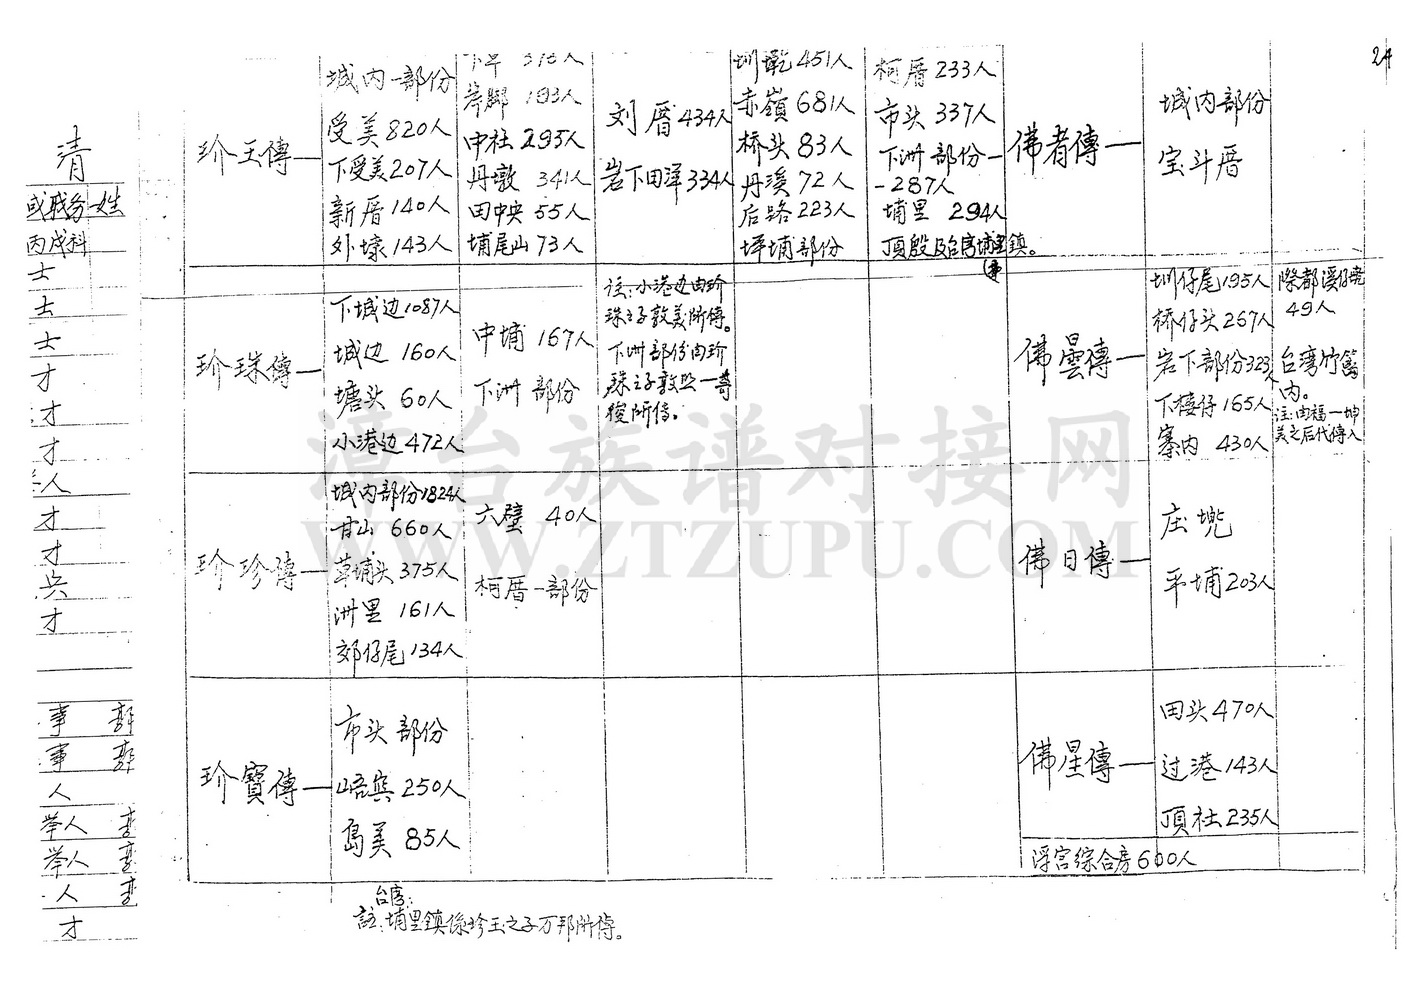 24
清
或職务 姓
丙戌科
士
士
士
才
才
才
人
才
才
兵
才
事
事
人
举人
举人
人
才
珍玉傳
城内一部份
受美820人
下受美207人
新厝140人
外壕143人
193人
中社295人
丹墩 341人
田中央 55人
埔尾山 73人
刘厝434人
岩下田洋334人
圳乾451人
赤嶺681人
桥头83人
丹溪72人
后路223人
坪埔部份
柯厝233人
市头337人
下洲部份-
-287人
埔里 294人
頂殷及台湾埔里鎮。
佛者傳
城内部份
宝斗厝
珍珠傳
下城边1087人
城边 160人
塘头 60人
小港边472人
中埔 167人
下洲 部份
註:小港边由珍
珠之子敦美所傳。
下洲部份由珍
佛雲傳
圳仔尾195人
桥仔头267人
岩下部份323人
下楼仔165人
寨内 430人
49人
台湾竹篙
内。
註:由福一坤
美之后代傳入
珍珍傳
城内部份1824人
甘山 660人
草埔头375人
洲里 161人
郊仔尾134人
六壁 40人
柯厝一部份
佛日傳
庄兠
平埔203人
珍寶傳
市头部份
峿與250人
島美 85人
佛星傳
田头470人
过港143人
頂社235人
浮宫综合房600人
註:埔里鎮係珍玉之子万邦所傳。
漳台族谱对接网
WWW.ZTZUPU.COM